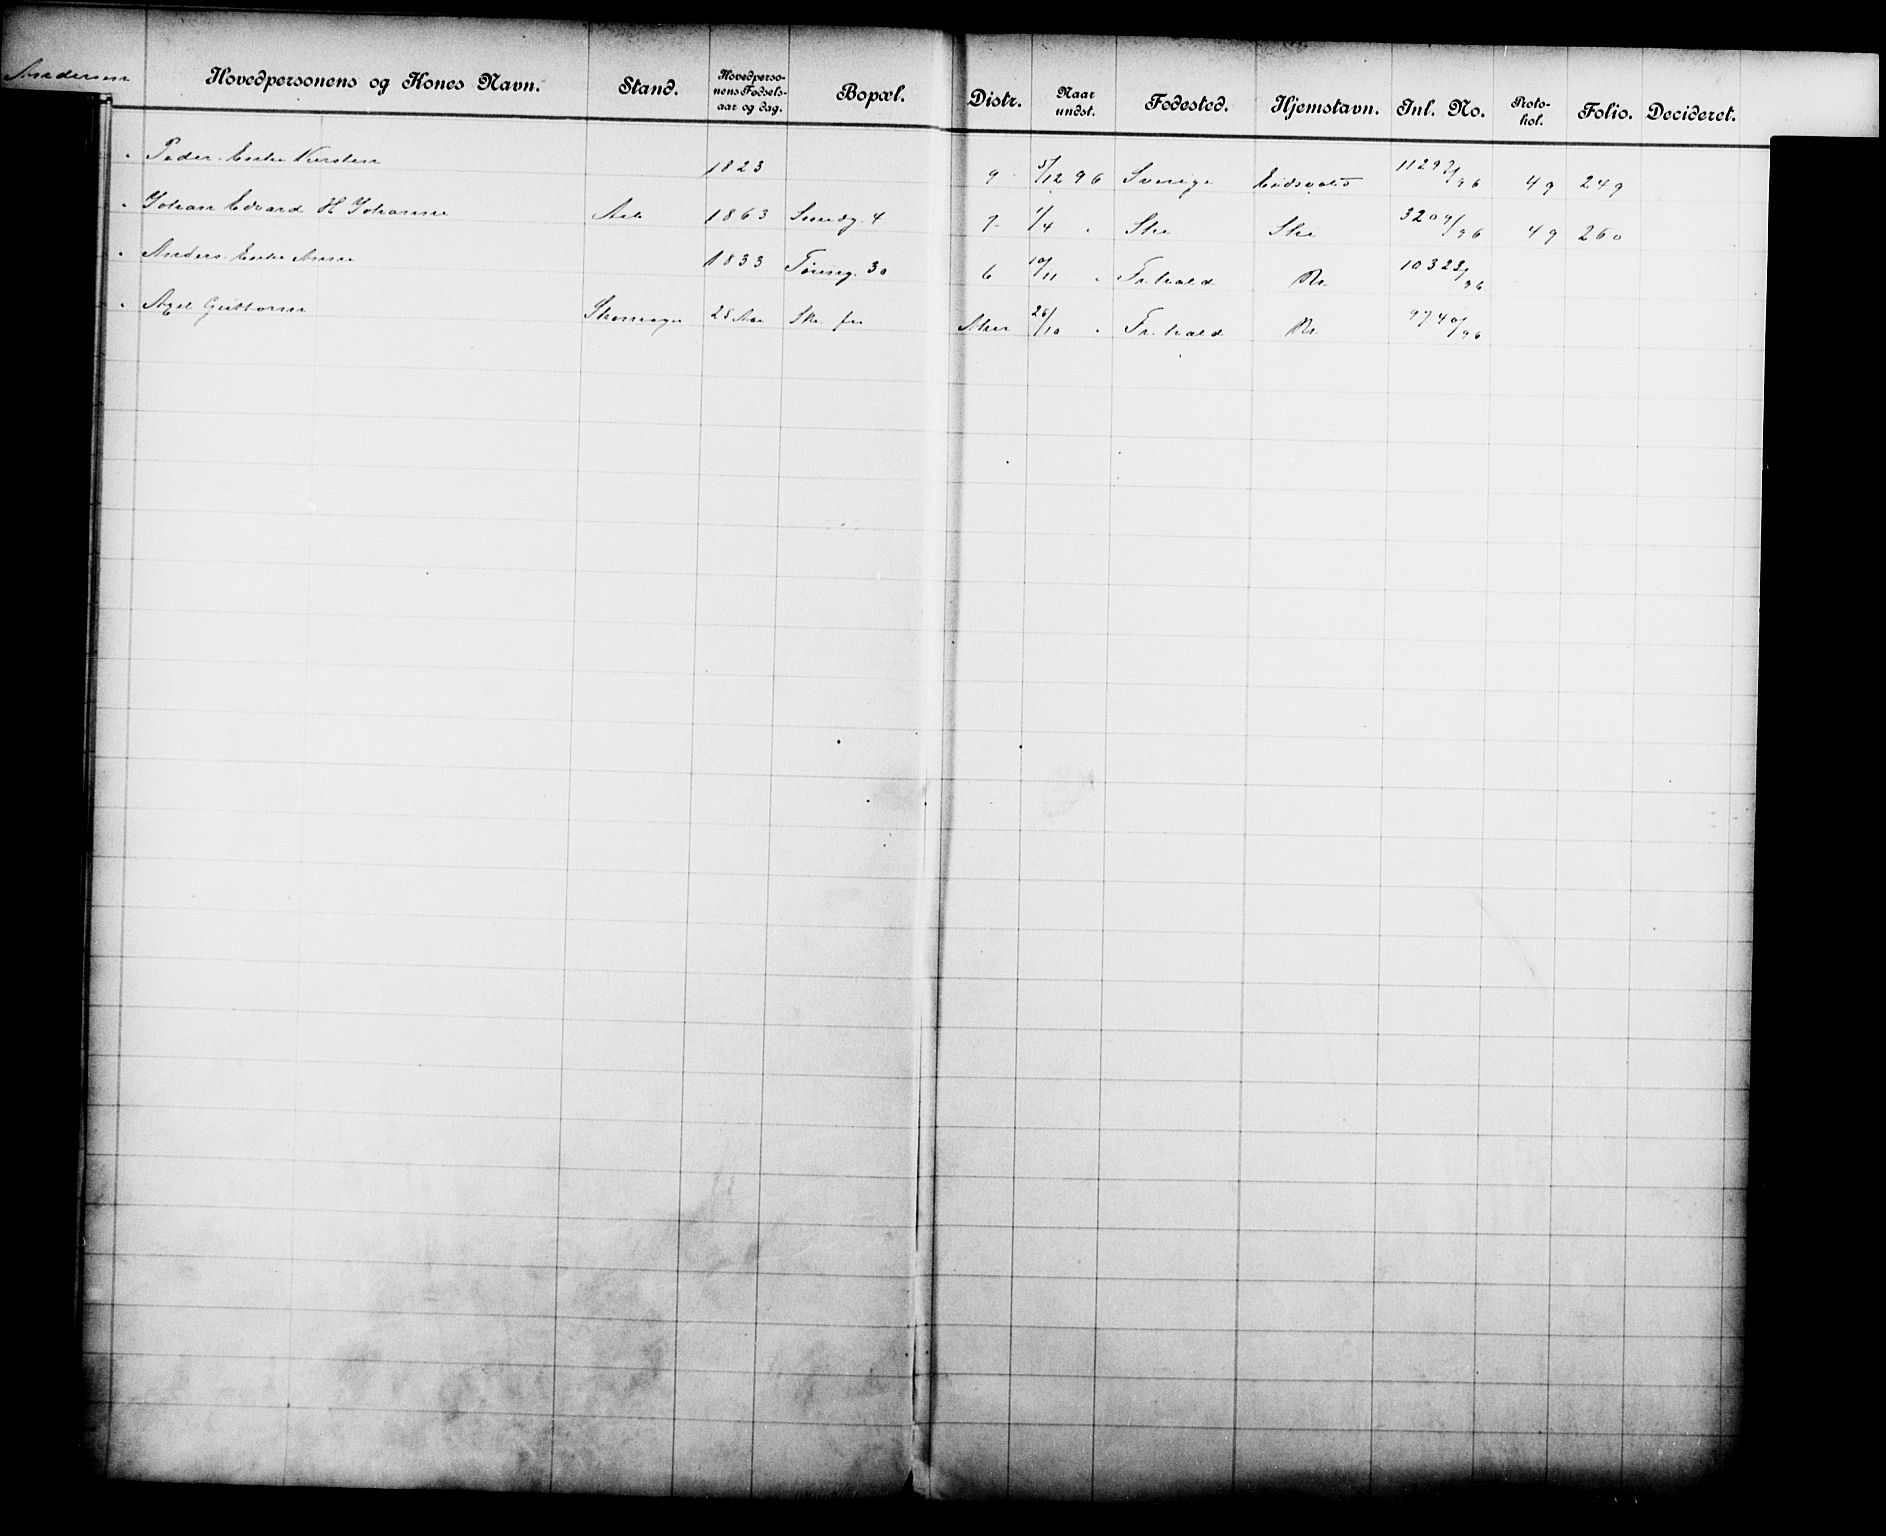 Andersen
Hovedpersonens og Kones Navn. Stand. Hovedpersonens Fødselsaar og dag. Bopæl. Distr. Naar undst. Fødested. Hjemstavn. Inl. No. Protokol. Folio. Decideret.
Peder Enke Kirsten 1823 9 5/12 96 Sverige Eidsvold 11297/96 49 249
Johan Edvard H Johanne Arb 1863 Smedg. 4 7 1/4 " Ske Ske 3209/96 49 260
Anders Enke Anne 1833 Tøieng. 30 6 10/11 " Fr.hald 10323/96
Axel Guttorm Skomager 25 Aar Aker 26/10 " Fr.hald 9740/96